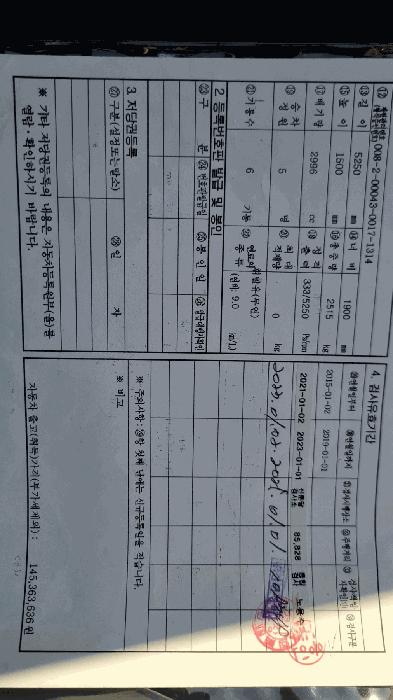 ⑫ 제원관리번호 008-2-00043-0017-1314
⑬ 길 이 5250 mm ⑭ 너 비 1900 mm
⑮ 높 이 1500 mm ⑯ 총 중 량 2515 kg
⑰ 배 기 량 2996 cc ⑱ 정격출력 333/5250 Ps/rpm
⑲ 승차정원 5 명 ⑳ 최대적재량 0 kg
㉑ 기통수 6 기통 ㉒ 연료의종류 휘발유(무연) (연비: 9.0 ㎞/L)
2. 등록번호판 발급 및 봉인
㉓ 구 분 ㉔ 번호판발급일 ㉕ 봉 인 일 ㉖ 발급대행자확인
3. 저당권등록
㉗ 구분(설정또는말소) ㉘ 일 자
※ 기타 저당권등록의 내용은 자동차등록원부(을)를
열람·확인하시기 바랍니다.
4. 검사유효기간
㉙ 연월일부터 ㉚ 연월일까지 ㉛ 검사시행장소 ㉜ 주행거리 ㉝ 검사책임자확인 ㉞ 검사구분
2015-01-02 2019-01-01
2021-01-02 2023-01-01 검사소 85,828 종합검사
2023. 01. 02.
※ 주의사항: ㉙항 첫째 난에는 신규등록일을 적습니다.
※ 비고
자동차 출고(취득)가격(부가세제외) : 145,363,636 원